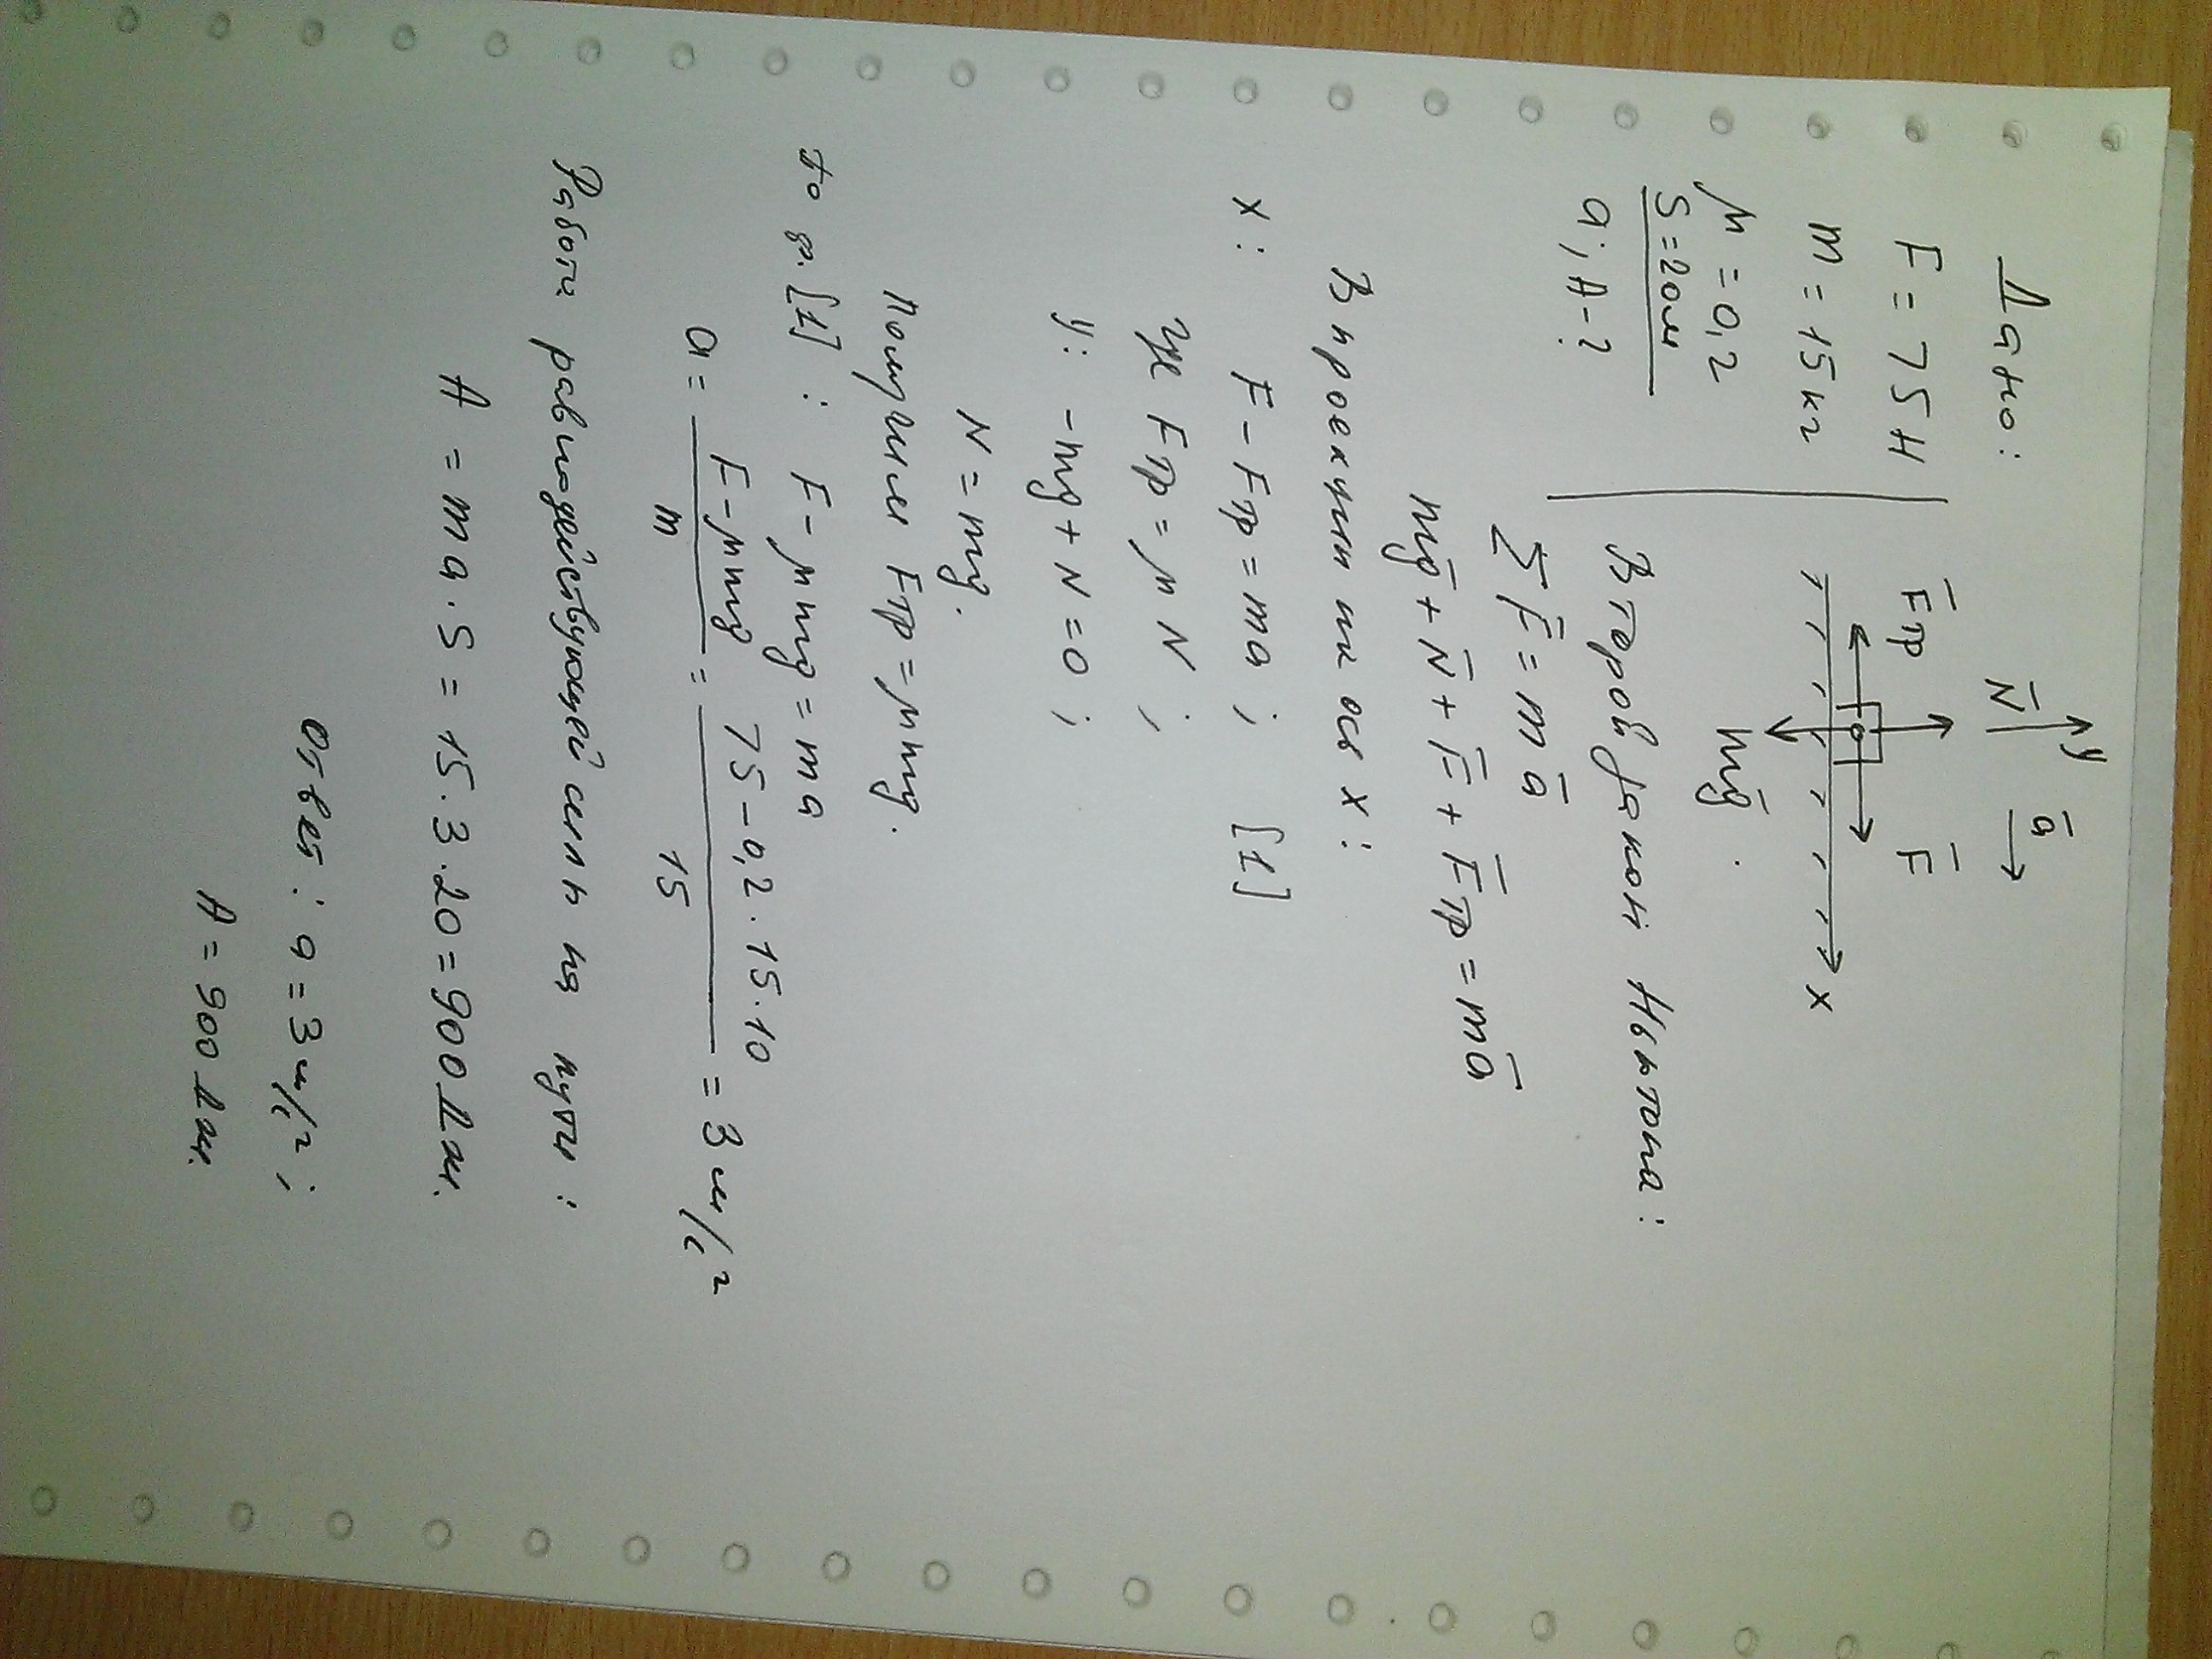 Дано:
F = 75 Н
m = 15 кг
μ = 0,2
S = 20 м
a; A - ?
y
N̅ a̅
F̅тр F̅
x
mg̅
Второй закон Ньютона:
ΣF̅ = ma̅
mg̅ + N̅ + F̅ + F̅тр = ma̅
В проекции на ось x:
x: F - Fтр = ma; [1]
где Fтр = μN;
y: -mg + N = 0;
N = mg.
Получим Fтр = μmg.
то ф. [1]: F - μmg = ma
a = (F - μmg)/m = (75 - 0,2 · 15 · 10)/15 = 3 м/с²
Работа равнодействующей силы на пути:
A = ma · S = 15 · 3 · 20 = 900 Дж.
Ответ: a = 3 м/с²;
A = 900 Дж.